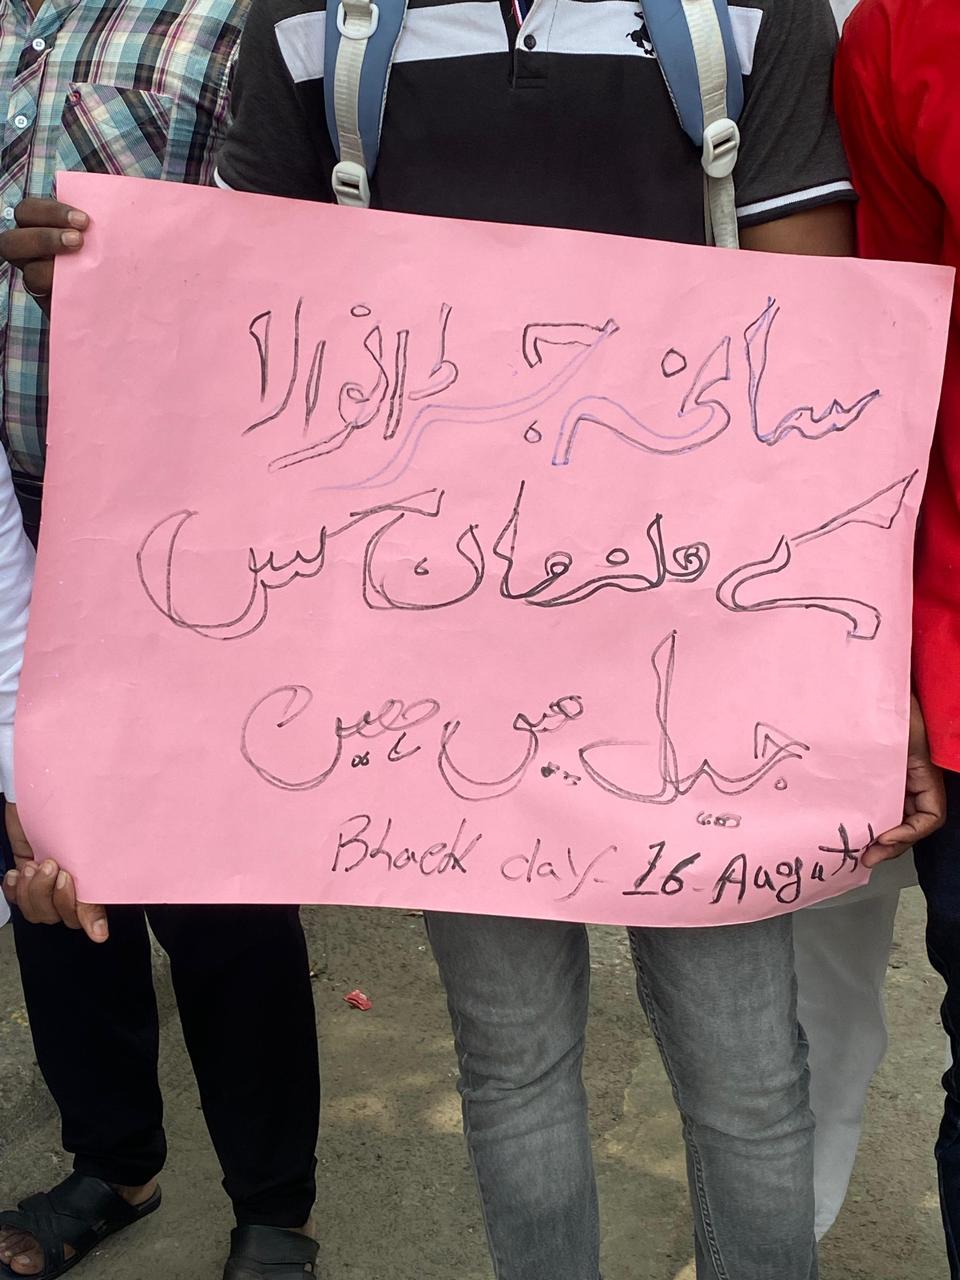 سانحہ جڑانوالا
کے ملزمان آج کس
جیل میں ہیں
Black day- 16 August